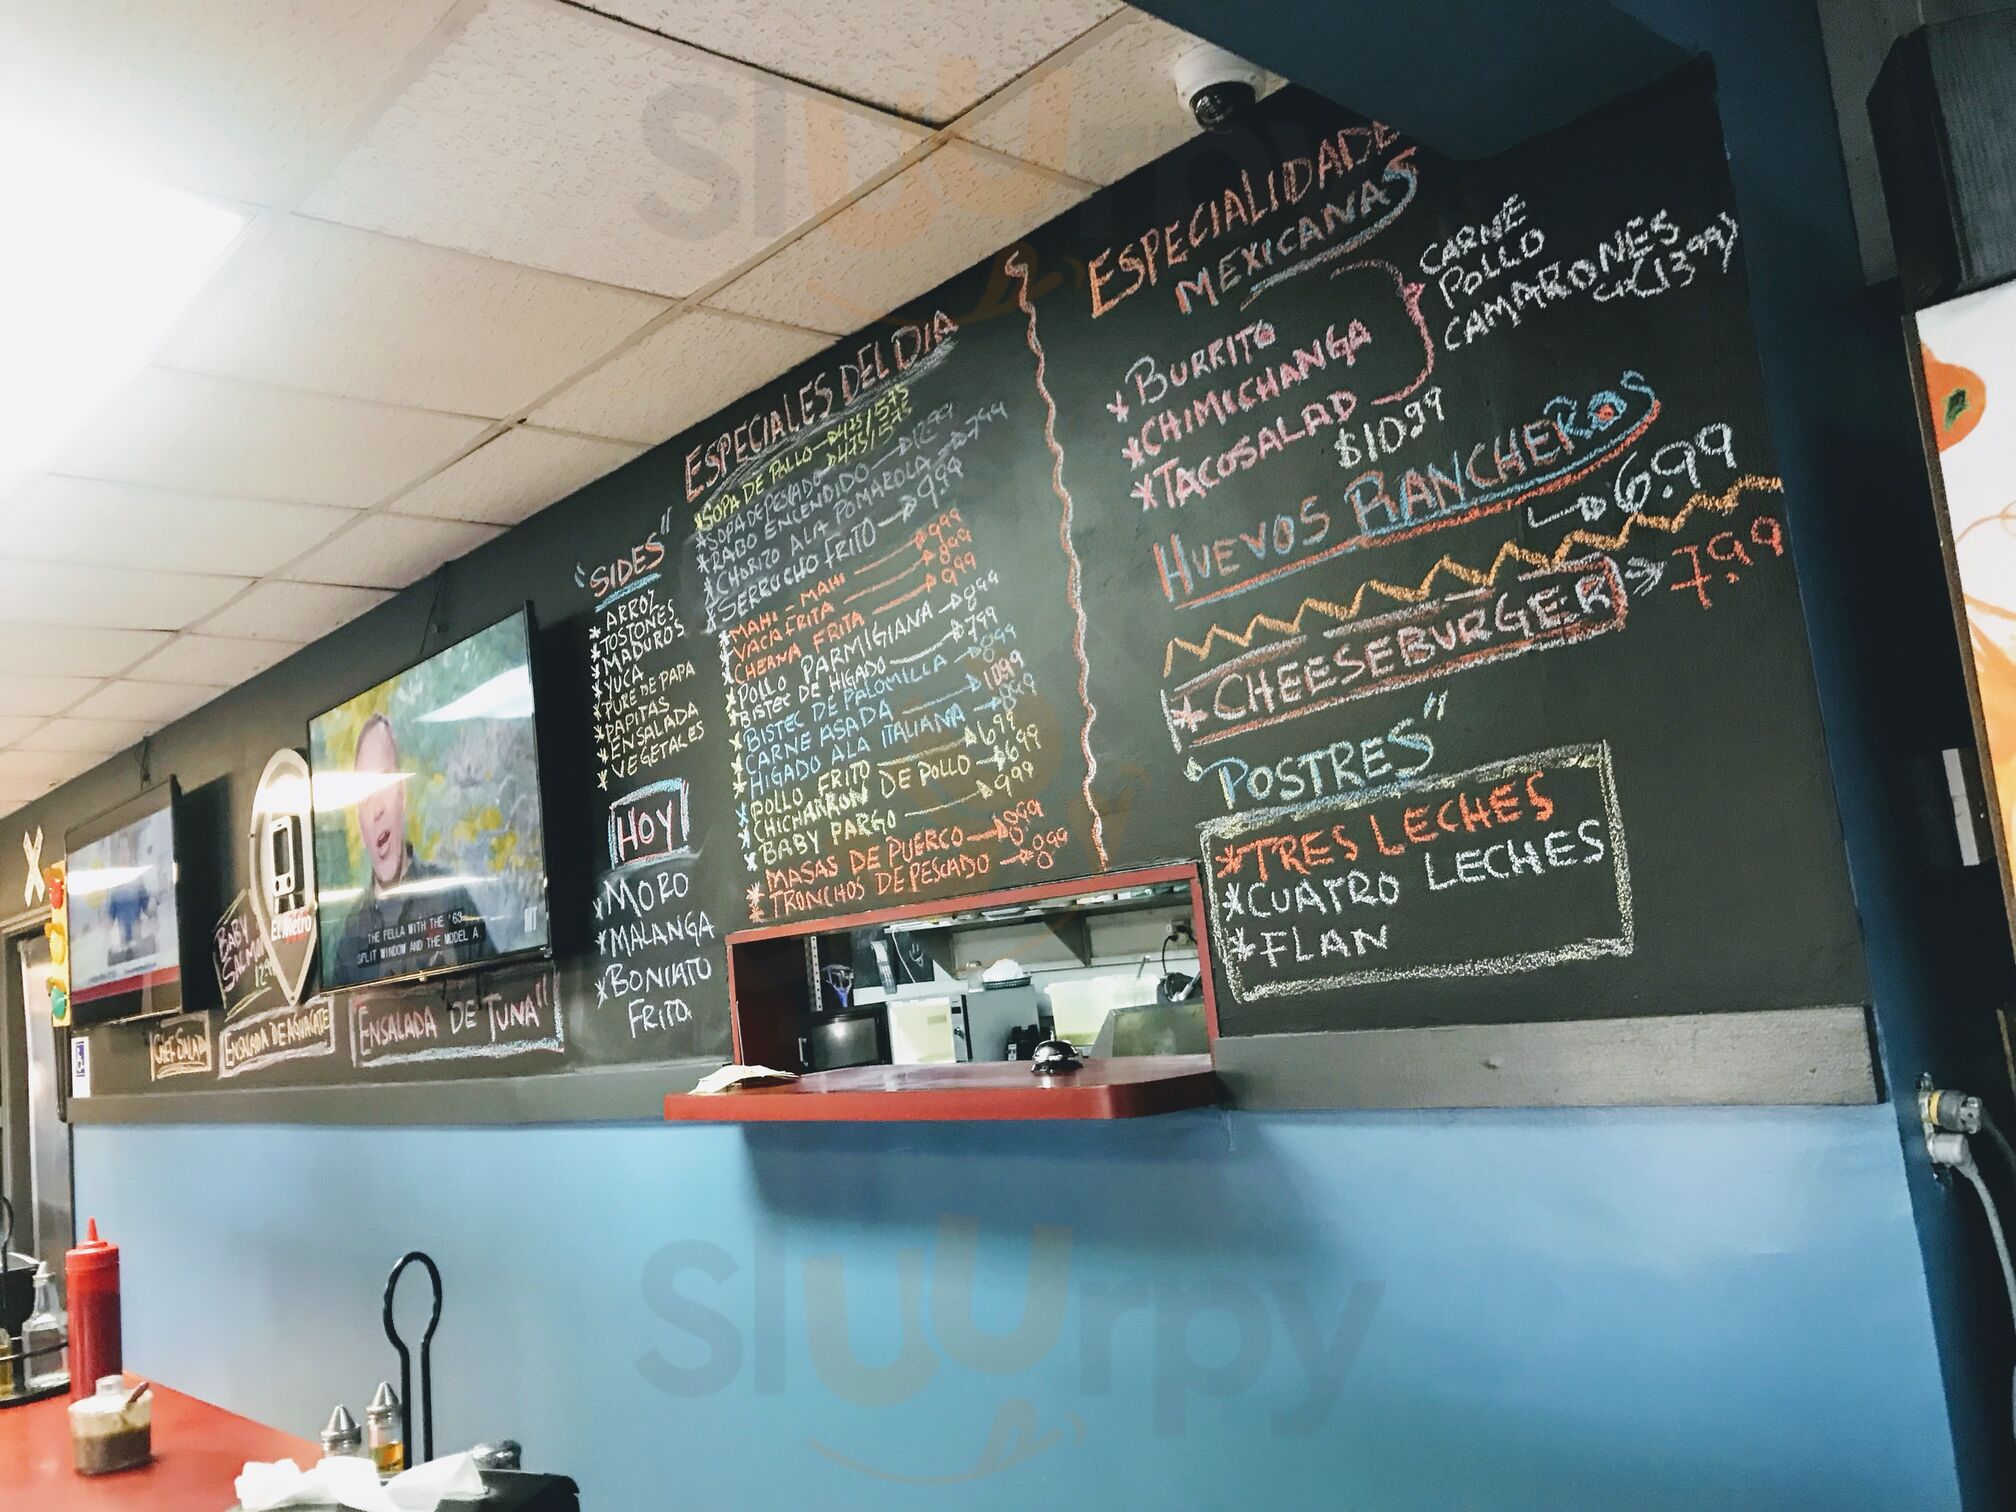 ESPECIALES DEL DIA
*SOPA DE POLLO 4.75/5.75
*SOPA DE PESCADO 4.75/5.75
*RABO ENCENDIDO 12.99
*CHORIZO A LA POMAROLA 7.99
*SERRUCHO FRITO 9.99
*MAHI-MAHI 9.99
*VACA FRITA 8.99
*CHERNA FRITA 9.99
*POLLO PARMIGIANA 8.99
*BISTEC DE HIGADO 7.99
*BISTEC DE PALOMILLA 8.99
*CARNE ASADA 10.99
*HIGADO A LA ITALIANA 8.99
*POLLO FRITO 6.99
*CHICHARRON DE POLLO 6.99
*BABY PARGO 9.99
*MASAS DE PUERCO 8.99
*TRONCHOS DE PESCADO 8.99
"SIDES"
*ARROZ
*TOSTONES
*MADUROS
*YUCA
*PURE DE PAPA
*PAPITAS
*ENSALADA
*VEGETALES
HOY
*MORO
*MALANGA
*BONIATO
FRITO
ESPECIALIDADES
MEXICANAS
*BURRITO
*CHIMICHANGA
*TACOSALAD
$10.99
CARNE
POLLO
CAMARONES
(13.99)
HUEVOS RANCHEROS
6.99
*CHEESEBURGER 7.99
"POSTRES"
*TRES LECHES
*CUATRO LECHES
*FLAN
BABY
SALMON
El Metro
THE FELLA WITH THE '63
SPLIT WINDOW AND THE MODEL A
CHEF SALAD
ENSALADA DE AGUACATE
ENSALADA DE TUNA"
sluurpy
sluurpy